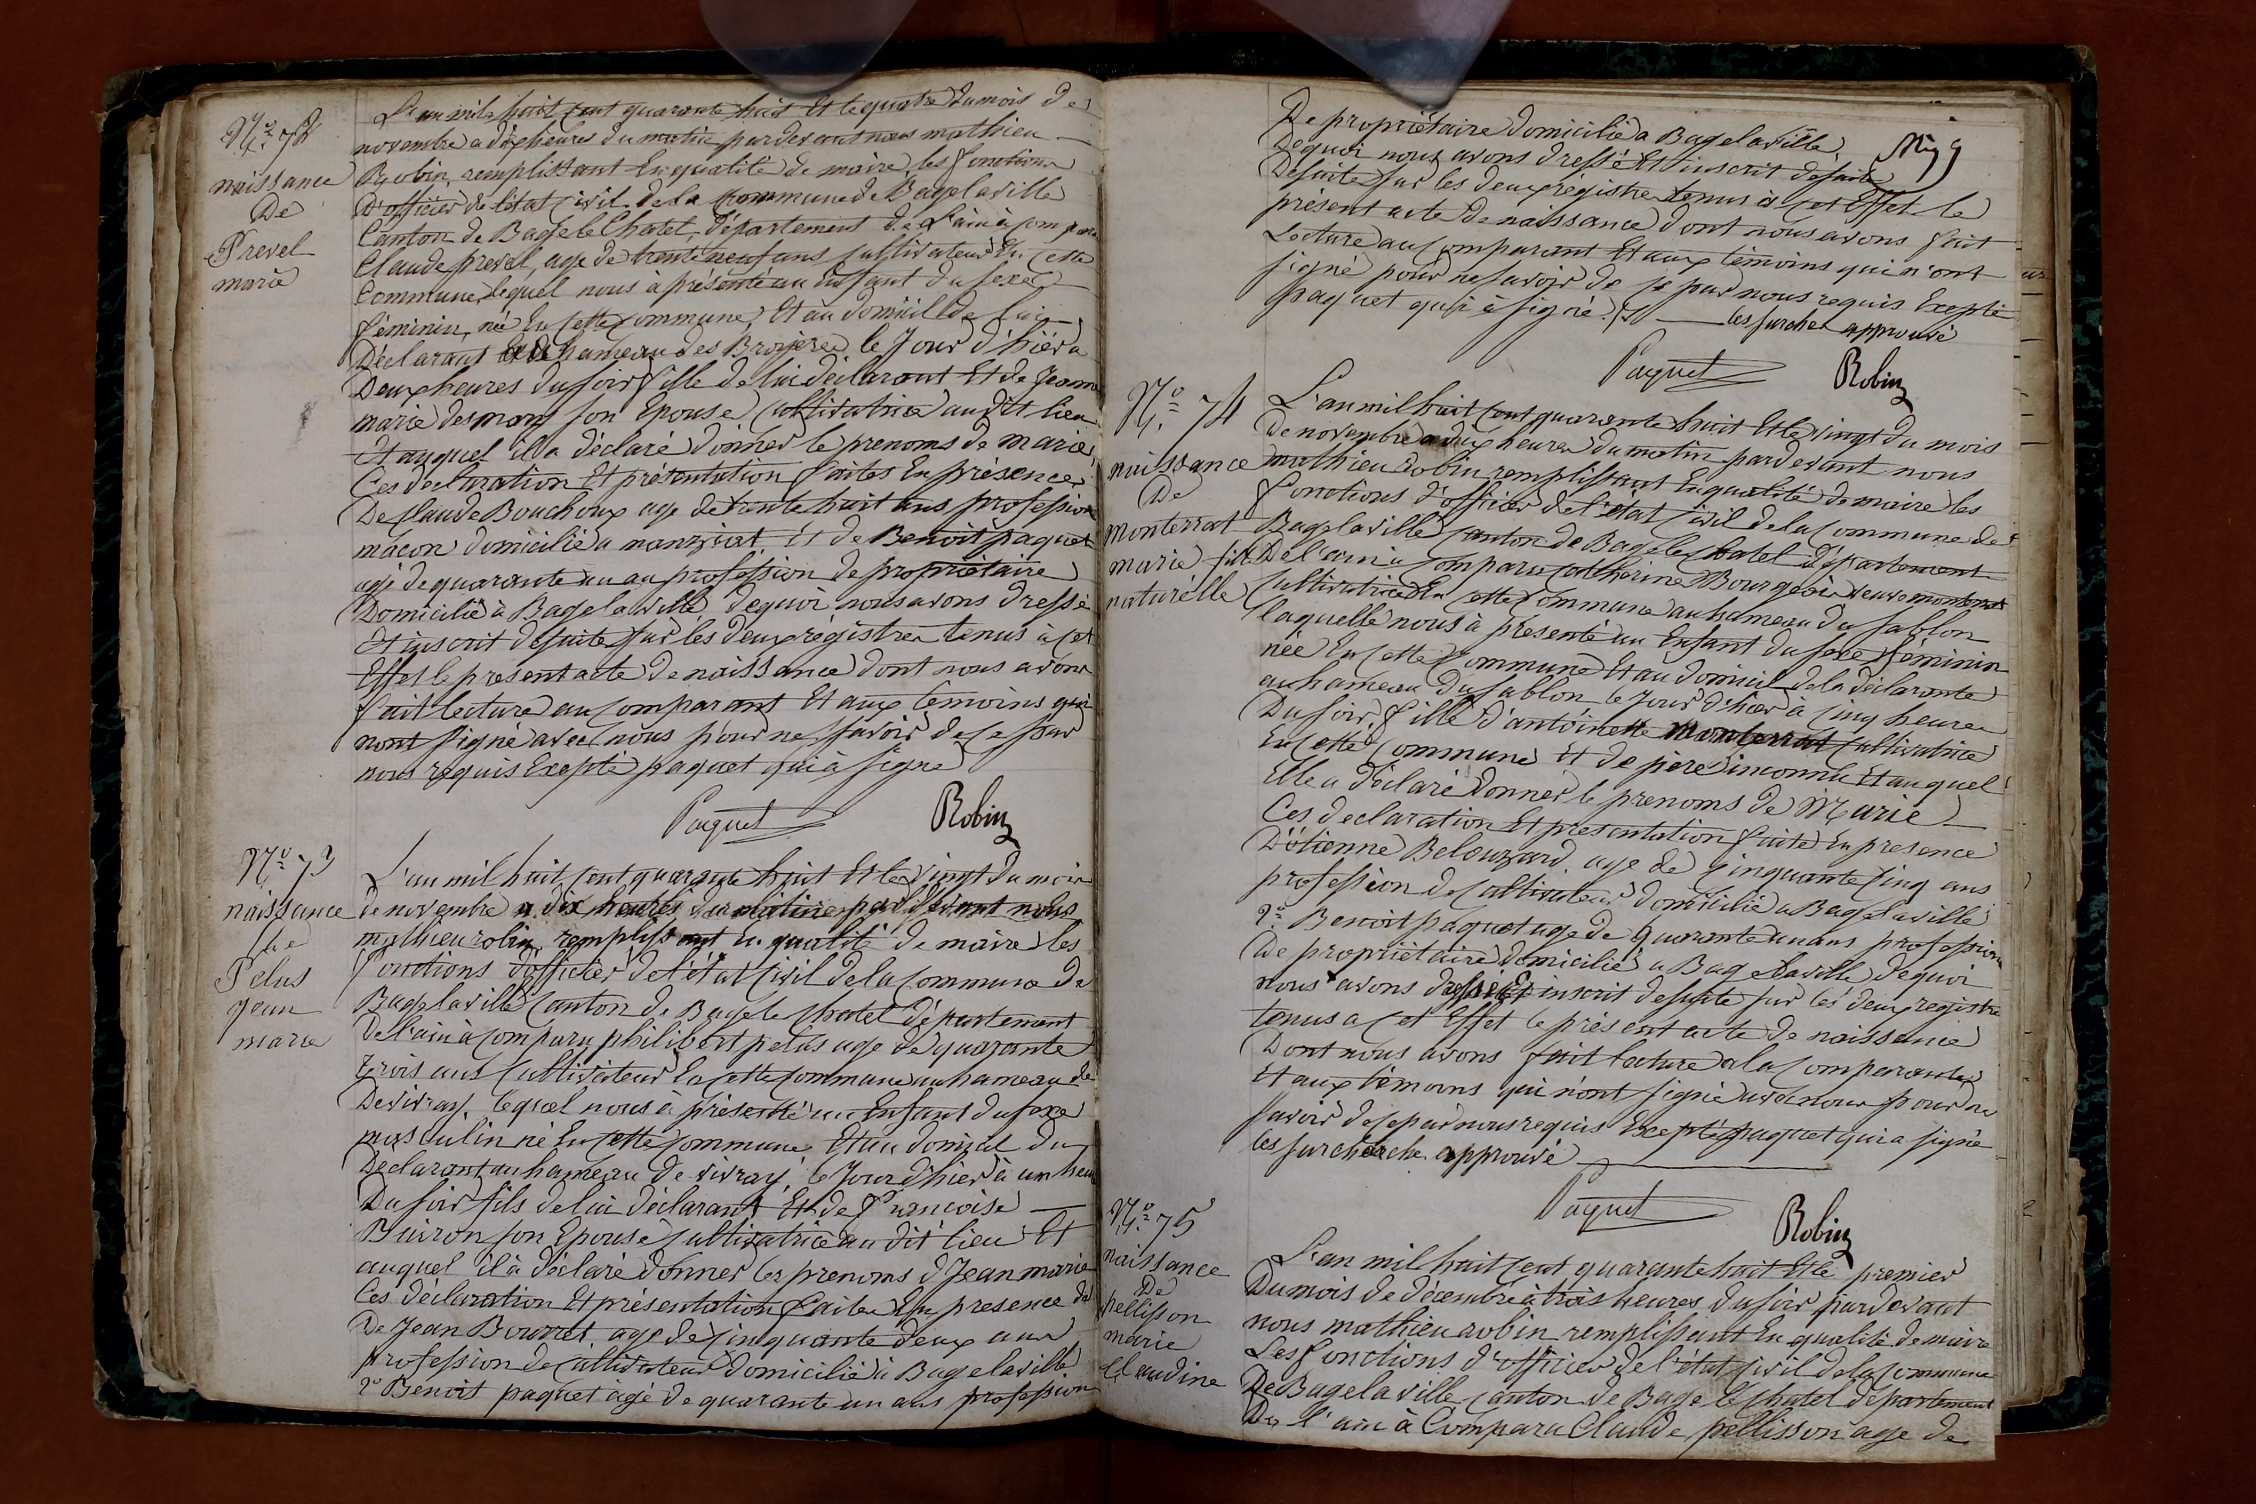 N.º 72
naissance
De
Prevel
marie
L'an mil huit cent quarante huit Et le quatre du mois de
novembre a dix heures du matin pardevant nous mathieu
Robin, remplissant En qualité de maire, les fonctions
D'officier de l'état civil de la commune de Bagelaville
Canton de Bagé le Chatel, département de L'ain à comparu
Claude prevel, age de trente neuf ans cultivateur En cette
Commune, lequel nous à présenté un Enfant du sexe
féminin, née En cette commune Et au domicile de lui
Déclarant au hameau des Broyeres le Jour d'hier a
Deux heures du soir fille de lui déclarant Et de Jeanne
marie desmaris son Epouse cultivatrice au dit lieu
Et auquel il a déclaré donner le prenoms de marie,
Ces declaration Et présentation faites En présence
De claude Bouchoux age de trente huit ans profession
macon domicilié a manziat Et de Benoit paquet
agé de quarante un an profession de propriétaire
Domicilié à Bagelaville dequoi nous avons dressé
Et inscrit desuite sur les deux régistres tenus à cet
Effet le present acte de naissance dont nous avons
fait lecture au comparant Et aux temoins qui
nont signé avec nous pour ne savoir de ce par
nous requis Excepté paquet qui à signé
Paquet Robin
N.º 73
naissance
de
Pelus
jean
marie
L'an mil huit cent quarante huit Et le vingt du mois
de novembre a dix heures du matin pardevant nous
mathieu robin, remplissant En qualité de maire les
fonctions d'officier de l'état civil de la commune de
Bagelaville canton de Bagé le chatel département
De l'ain à comparu philibert pelus age de quarante
trois ans cultivateur En cette commune au hameau de
De vivray, lequel nous à présenté un Enfant du sexe
masculin né En cette commune Et au domicil du
Déclarant au hameau de vivray, le Jour d'hier à un heure
Du soir fils de lui déclarant Et de francoise
Buiron son Epouse cultivatrice au dit lieu Et
auquel il à déclaré donner les prenoms d'Jean marie
Ces déclaration Et présentation faites En presence de
De Jean Bourret age de cinquante deux ans
profession de cultivateur domicilié à Bagelaville
2º Benoit paquet agé de quarante un ans profession
De propriétaire domicilié a Bagelaville
Dequoi nous avons dressé Et inscrit desuite
Desuite sur les deux régistre tenus à cet Effet le
présent acte de naissance dont nous avons fait
Lecture au comparant Et aux témoins qui n'ont
signé pour ne savoir de ce par nous requis Excepté
paquet qui à signé les surcher approuvé
Paquet Robin
N.º 74
naissance
De
monterrat
marie fille
naturélle
L'an mil huit cent quarante huit Et le vingt du mois
De novembre a dix heures du matin pardevant nous
mathieu Robin remplissant En qualité de maire les
fonctions d'officier de l'état civil de la commune de
Bagelaville canton de Bagé le chatel département
De l'ain à comparu catherine Bourgeois veuve monterrat
Cultivatrice En cette commune au hameau du sablon
laquelle nous à présenté un Enfant du sexe féminin
née En cette commune Et au domicil de la déclarante
au hameau du sablon le Jour d'hier a cinq heures
Du soir, fille d'antoinette Monterrat cultivatrice
En cette commune Et de père inconnu Et auquel
Elle a déclaré donner le prenoms de Marie
Ces declaration Et presentation faite En presence
D'étienne Belouzard age de cinquante cinq ans
profession de cultivateur domicilié a Bagelaville
2º Benoit paquet age de quarante un ans profession
De propriétaire domicilié a Bagelaville dequoi
nous avons dressé Et inscrit desuite sur les deux registre
tenus a cet Effet le présent acte de naissance
Dont nous avons fait lecture a la comparante
Et aux témoins qui n'ont signé avec nous pour ne
savoir de ce par nous requis Excepté paquet qui a signé
les surcherche approuvé
Paquet Robin
N.º 75
naissance
De
pellisson
marie
Claudine
L'an mil huit cent quarante huit Et le premier
Du mois de décembre à trois heures du soir pardevant
nous mathieu robin remplissant En qualité de maire
Les fonctions d'officier de l'état civil de la commune
De Bagelaville canton de Bagé le chatel département
De l'ain à Comparu Claude pellisson age de